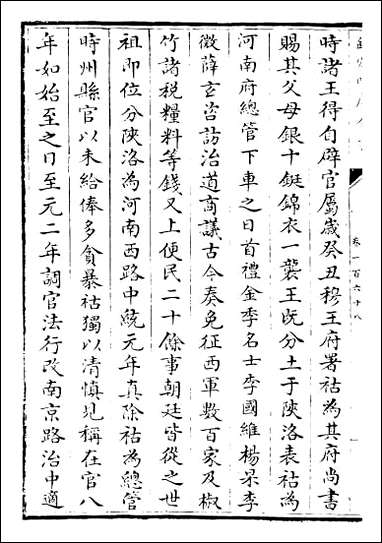 時諸王得自辟官屬歲癸丑穆王府署祜為其府尚書
賜其父母銀十鋌錦衣一襲王既分土于陝洛表祜為
河南府總管下車之日首禮金季名士李國維楊杲李
微薛玄咨訪治道商議古今奏免征西軍數百家及椒
竹諸税糧料等錢又上便民二十餘事朝廷皆從之世
祖即位分陝洛為河南西路中統元年真除祜為總管
時州縣官以未給俸多貪暴祜獨以清慎見稱在官八
年如始至之日至元二年調官法行改南京路治中適
卷一百六十八